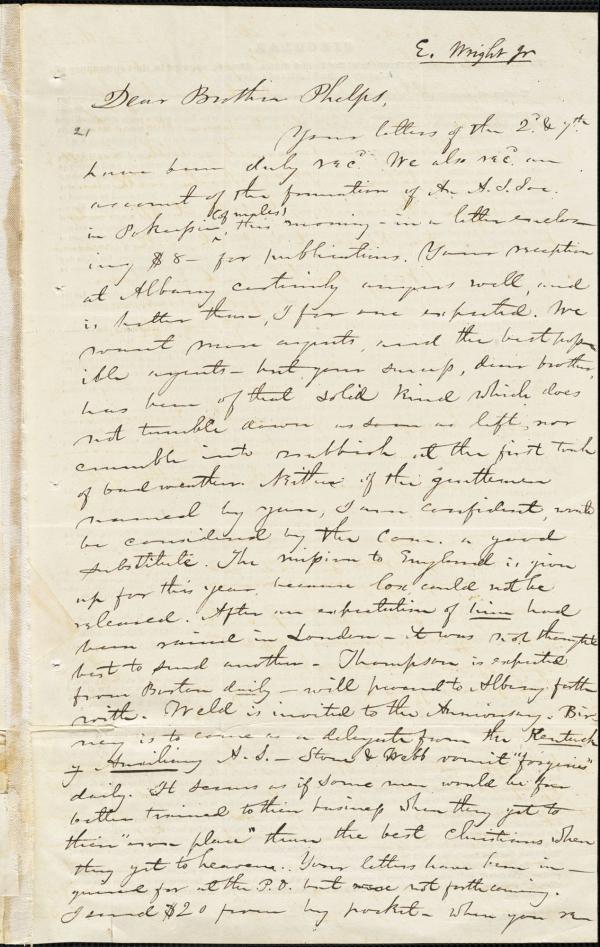 E. Wright Jr
Dear Brother Phelps,
21
Your letters of the 2d & 7th
have been duly recd. We also recd. an
account of the formation of An A. S. Soc.
(of males)
in Pokeepsie, this morning — in a letter enclos
ing $8 — for publications. Your reception
at Albany certainly augurs well, and
is better than, I for one expected. We
want more agents, and the best poss
ible agents — but your success, dear brother,
has been of that solid kind which does
not tumble down as soon as left, nor
crumble into rubbish at the first touch
of bad weather. Neither of the gentlemen
named by you, I am confident, would
be considered by the Com. a good
substitute. The mission to England is given
up for this year, because Cox could not be
released. After an expectation of him had
been raised in London — it was not thought
best to send another — Thompson is expected
from Boston daily — will proceed to Albany forth
with. Weld is invited to the Anniversary. Bir
ney is to come as a delegate from the Kentuck
y Auxiliary A. S. — Stone & Webb vomit "forgeries"
daily. It seems as if some men would be far
better trained to their business when they get to
their "own place" than the best Christians when
they get to heaven. Your letters have been in —
quired for at the P.O. but not forthcoming.
I send $20 from my pocket — when you